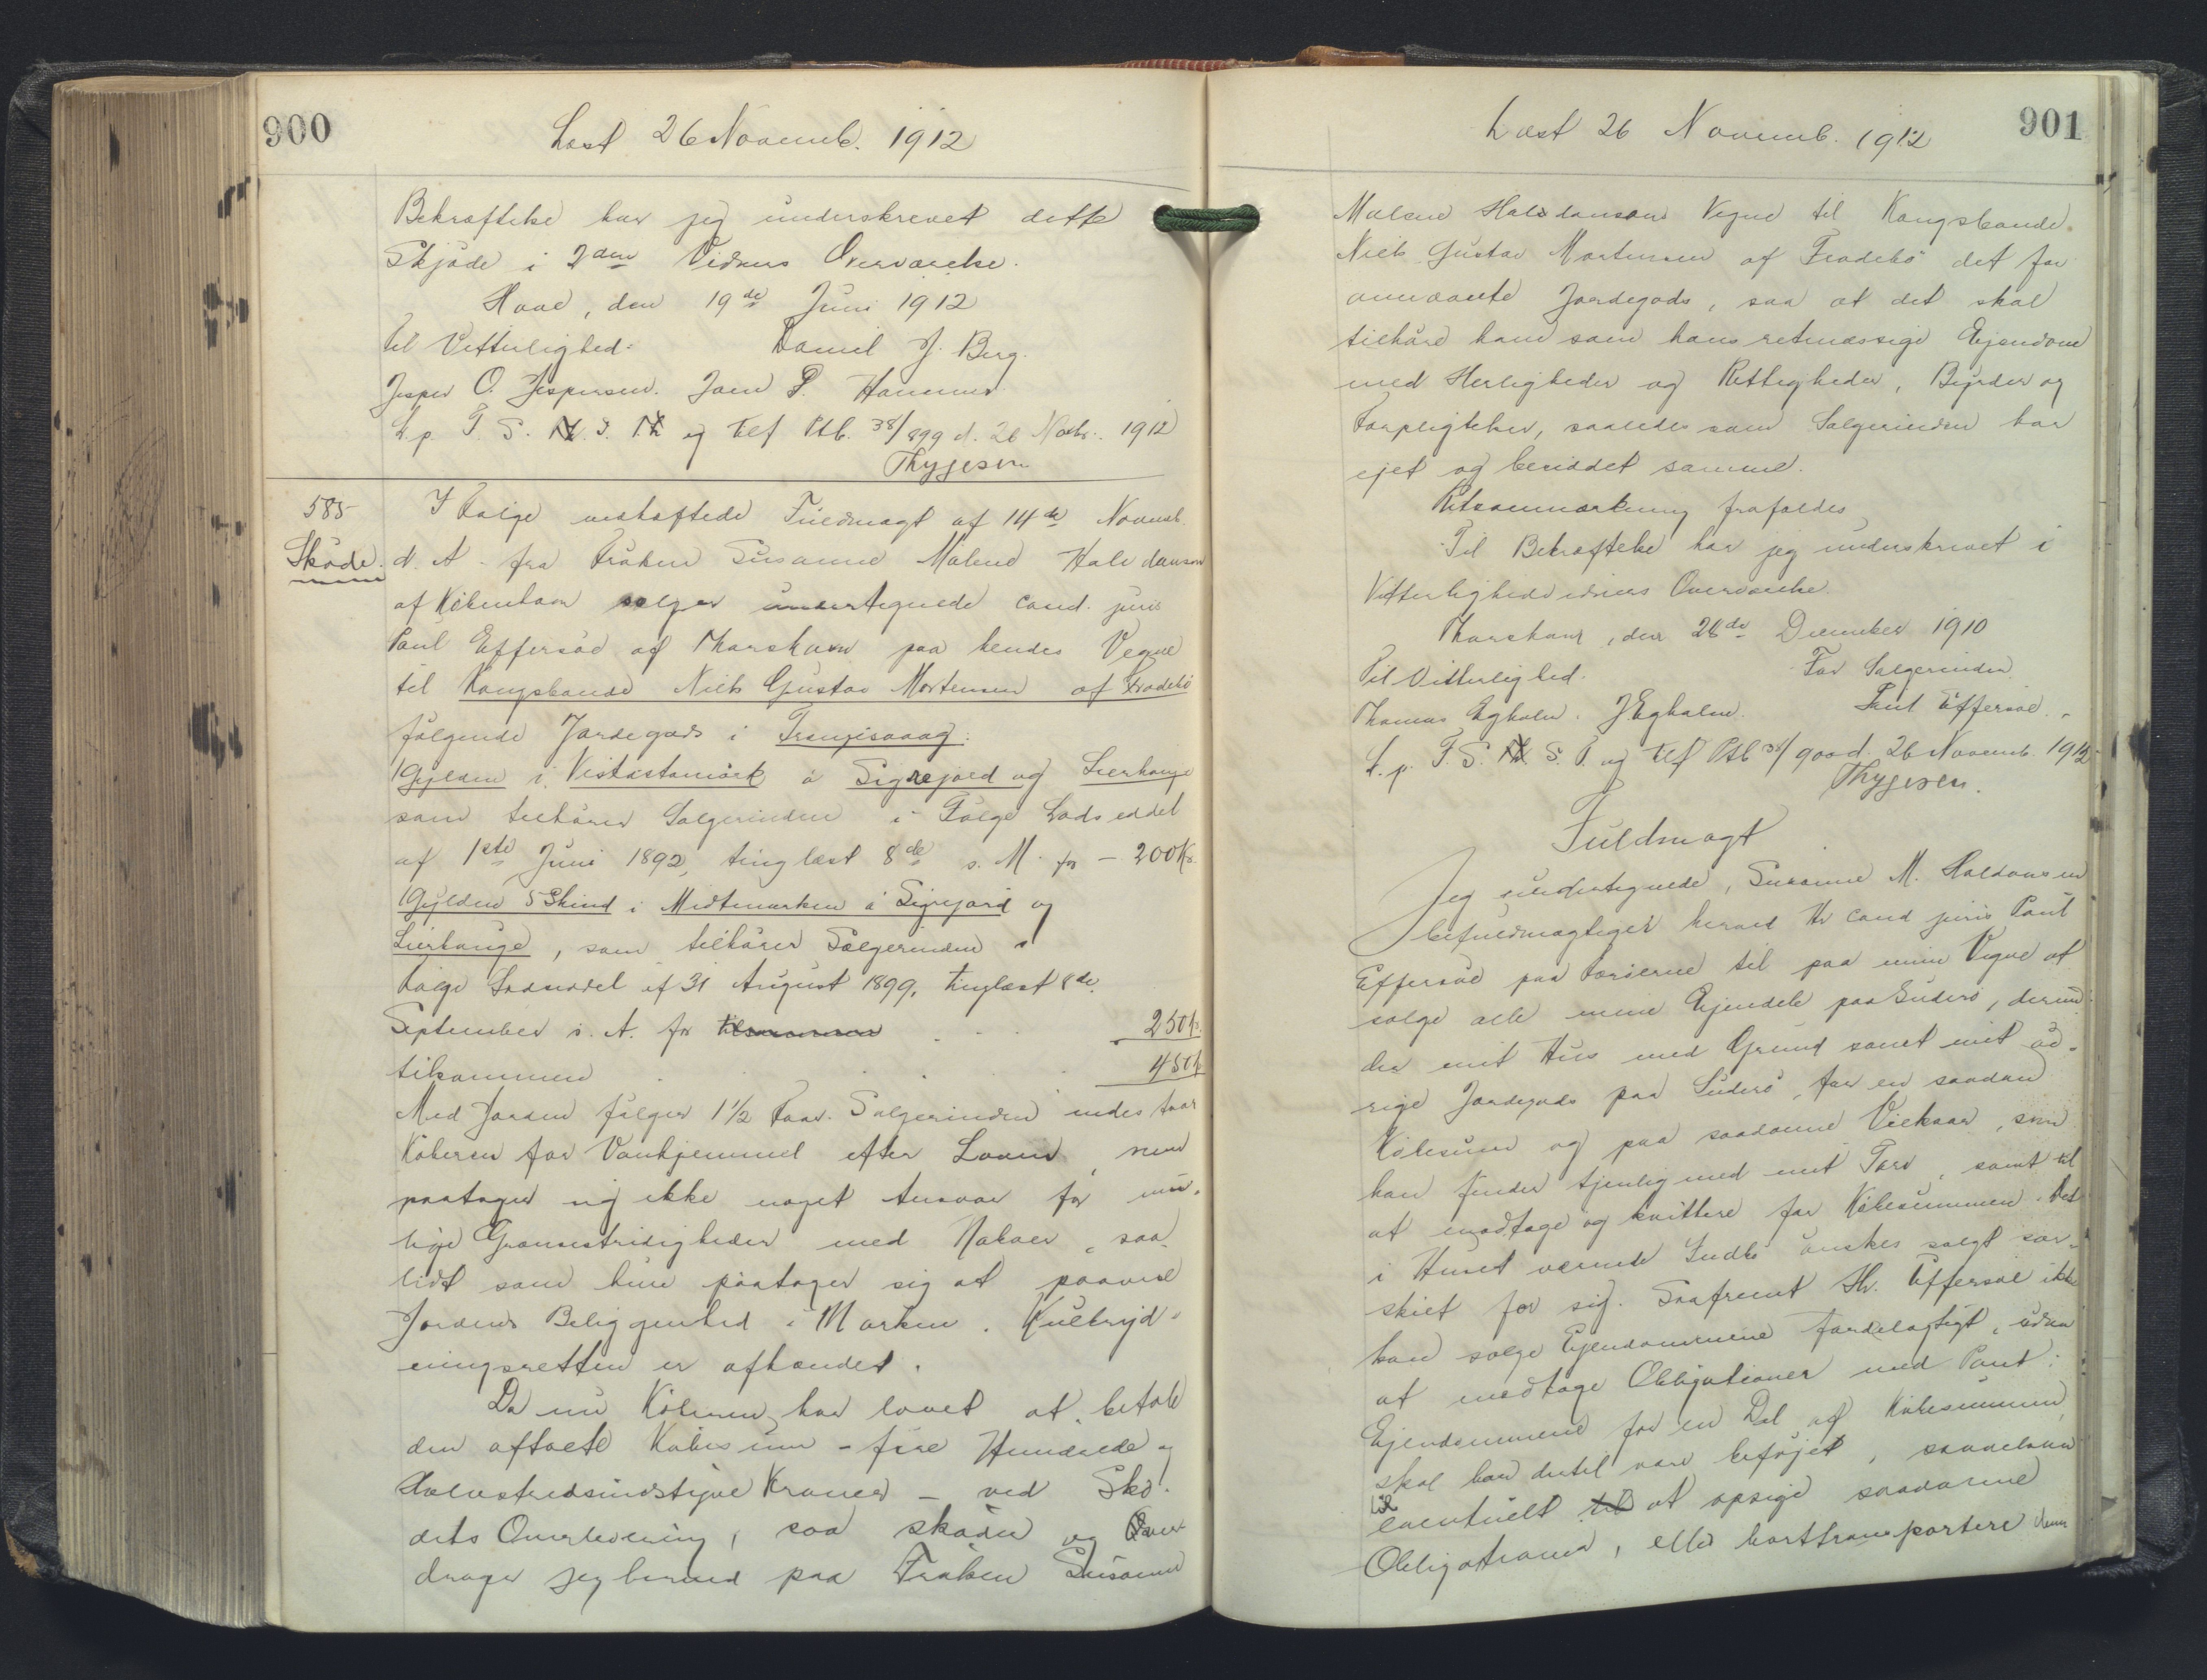 900
Læst 26 Novemb. 1912
Bekræftelse har jeg underskrevet dette
Skjøde i 2de Vidners Overværelse.
Hove, den 19de Juni 1912
til Vitterlighed: Daniel J. Berg.
Jesper O. Jespersen. Joen P. Hammer
L. p. F. S. og Extf Ptb. 38/899 d. 26 Novbr. 1912
Thygesen
585 I Følge vedhæftede Fuldmagt af 14de Novemb.
Skøde. d. A. fra Frøken Susanne Malene Halvdansen
af København sælger undertegnede cand. juris
Poul Effersøe af Thorshavn paa hendes Vegne
til Kongsbonde Niels Gustav Mortensen af Frodebø
følgende Jordegods i Trangisvaag:
1 Gylden i Vistastamørk a Sigrejord og Lierhauge
som tilhører Sælgerinden i Følge Lodseddel
af 1ste Juni 1892, tinglæst 8de s. M. for — 200 Kr.
1 Gylden 5 Skind i Midtmarken a Sigrejord og
Lierhauge, som tilhører Sælgerinden i
Følge Lodseddel af 31 August 1899, tinglæst 8de
September s. A. for tilsammen . . . 250 Kr.
tilsammen . . . . . 450 Kr
Med Jorden følger 1½ Faar. Sælgerinden indestaar
Køberen for Vanhjemmel efter Loven, men
paatager sig ikke noget Ansvar for mu-
lige Grænsestridigheder med Naboer, saa
lidt som hun paatager sig at paavise
Jordens Beliggenhed i Marken. Kulbryd-
ningsretten er afhændet.
Da nu Køberen har lovet at betale
den aftalte Købesum – fire Hundrede og
Halvtredsindstyve Kroner – ved Skø-
dets Overlevering, saa skøder og Over-
drager jeg herved paa Frøken Susanne
901
Læst 26 Novemb. 1912
Malene Halvdansens Vegne til Kongsbonde
Niels Gustav Mortensen af Frodebø det for
omvante Jordegods, saa at det skal
tilhøre ham som hans retmæssige Ejendom
med Herligheder og Rettigheder, Byrder og
Forpligtelser, saaledes som Sælgerinden har
ejet og besiddet samme.
Retsanmærkning frafaldes
Til Bekræftelse har jeg underskrevet i
Vitterlighedsvidners Overværelse.
Thorshavn, den 28de December 1910
Til Vitterlighed. For Sælgerinden
Thomas Egholm. J Egholm. Poul Effersøe.
L. p. F. S. og Extf Ptb 38/900 d. 26 Novemb. 1912
Thygesen.
Fuldmagt
Jeg undertegnede, Susanne M. Haldansen
befuldmægtiger herved Hr cand juris Poul
Effersøe paa Færøerne til paa mine Vegne at
sælge alle mine Ejendele paa Suderø, derun-
der mit Hus med Grund samt mit øv-
rige Jordegods paa Suderø, for en saadan
Købesum og paa saadanne Vilkaar, som
han finder tjenlig med mit Tarv, samt til
at modtage og kvittere for Købesummen. Det
i Huset værende Indbo ønskes solgt sær-
skilt for sig. Saafremt Hr. Effersøe ikke
kan sælge Ejendommene fordelagtigt, uden
at modtage Obligationer med Pant i
Ejendommene for en Del af Købesummen,
skal han dertil være beføjet, saavelsom
til eventuelt til at opsige saadanne
Obligationer, eller borttransportere dem